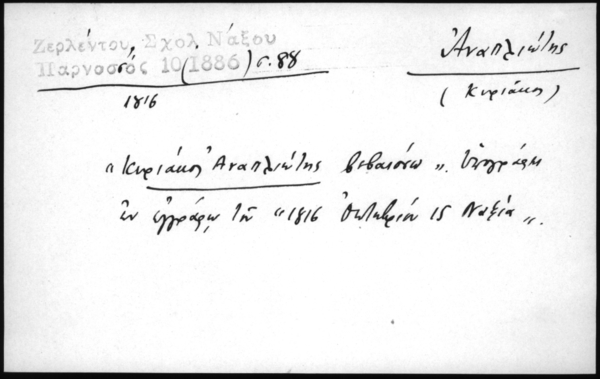 Ζερλέντου, Σχολ. Νάξου
Παρνασσός 10 (1886) σ. 88
Ἀναπλιώτης
(Κυριάκος)
1816
"Κυριάκος Ἀναπλιώτης βεβαιόνω". Ὑπογράφει
ἐν ἐγγράφῳ τοῦ "1816 Ὀκτωβρίου 15 Ναξία".